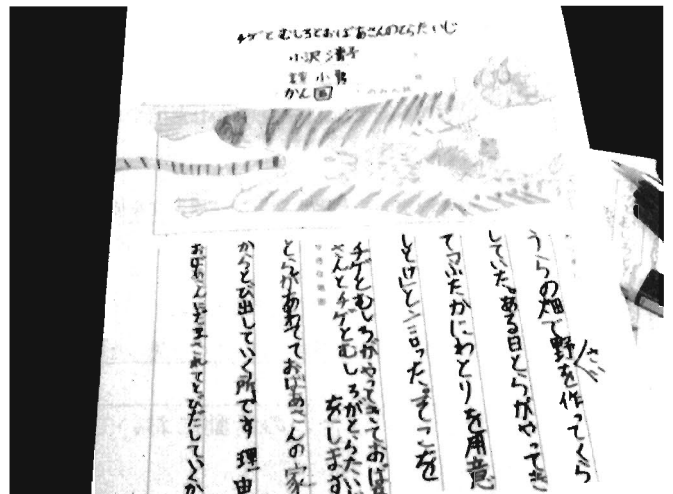 チゲとむしろとおばあさんのとらたいじ
小沢清子
かん
うらの畑で野さいを作ってくら
していた。ある日とらがやってき
てぶたかにわとりを用意
しとけと言った。そこを
チゲとむしろがやってきておばあ
さんとチゲとむしろがとらたい
をします
とらがあわてておばあさんの家
からとび出していく所です 理由
おばあさんに とびだしていくか